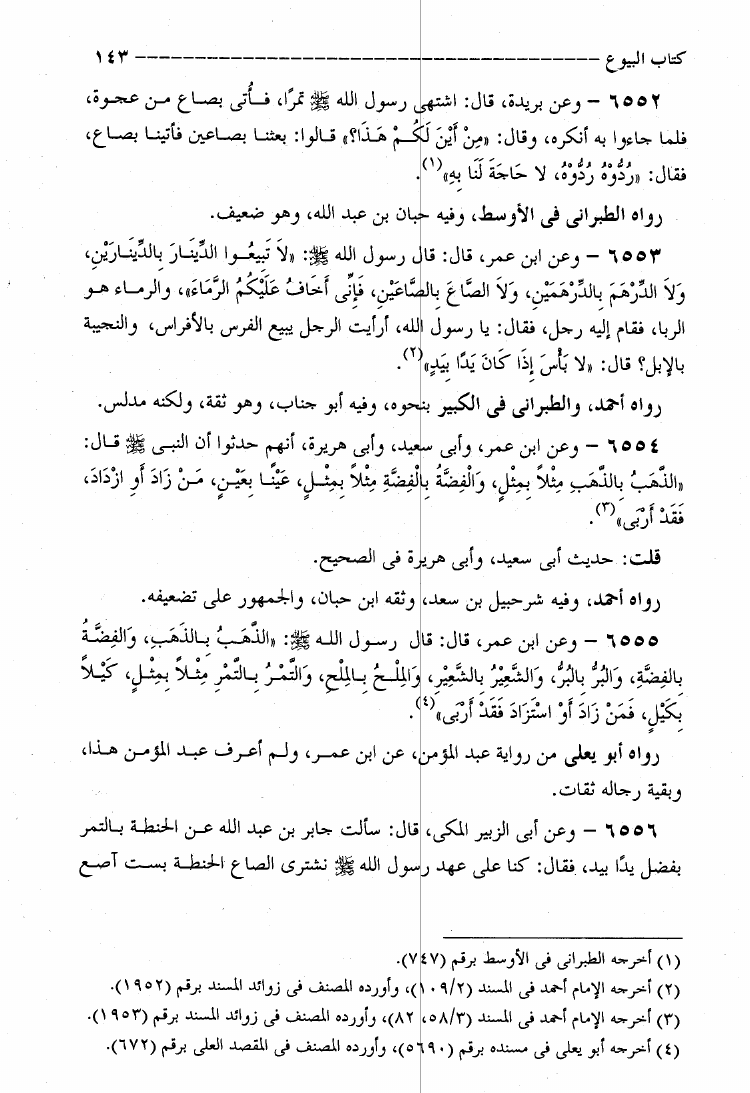 كتاب البيوع ---------------------------------------- ١٤٣
٦٥٥٢ – وعن بريدة، قال: اشتهى رسول الله ﷺ تمرًا، فأُتى بصاع من عجوة،
فلما جاءوا به أنكره، وقال: «مِنْ أَيْنَ لَكُمْ هَذَا؟» قالوا: بعثنا بصاعين فأتينا بصاع،
فقال: «رُدُّوْهُ رُدُّوْهُ، لا حَاجَةَ لَنَا بِهِ»(١).
رواه الطبرانى فى الأوسط، وفيه حبان بن عبد الله، وهو ضعيف.
٦٥٥٣ – وعن ابن عمر، قال: قال رسول الله ﷺ: «لاَ تَبِيعُوا الدِّينَارَ بِالدِّينَارَيْنِ،
وَلاَ الدِّرْهَمَ بِالدِّرْهَمَيْنِ، وَلاَ الصَّاعَ بِالصَّاعَيْنِ، فَإِنِّى أَخَافُ عَلَيْكُمُ الرَّمَاءَ»، والرماء هو
الربا، فقام إليه رجل، فقال: يا رسول الله، أرأيت الرجل يبيع الفرس بالأفراس، والنجيبة
بالإبل؟ قال: «لا بَأْسَ إِذَا كَانَ يَدًا بِيَدٍ»(٢).
رواه أحمد، والطبرانى فى الكبير بنحوه، وفيه أبو جناب، وهو ثقة، ولكنه مدلس.
٦٥٥٤ – وعن ابن عمر، وأبى سعيد، وأبى هريرة، أنهم حدثوا أن النبى ﷺ قال:
«الذَّهَبُ بِالذَّهَبِ مِثْلاً بِمِثْلٍ، وَالْفِضَّةُ بِالْفِضَّةِ مِثْلاً بِمِثْلٍ، عَيْنًا بِعَيْنٍ، مَنْ زَادَ أَوِ ازْدَادَ،
فَقَدْ أَرْبَى»(٣).
قلت: حديث أبى سعيد، وأبى هريرة فى الصحيح.
رواه أحمد، وفيه شرحبيل بن سعد، وثقه ابن حبان، والجمهور على تضعيفه.
٦٥٥٥ – وعن ابن عمر، قال: قال رسول الله ﷺ: «الذَّهَبُ بِالذَّهَبِ، وَالفِضَّةُ
بِالفِضَّةِ، وَالبُرُّ بِالبُرُّ، وَالشَّعِيْرُ بِالشَّعِيْرِ، وَالمِلْحُ بِالمِلْحِ، وَالتَّمْرُ بِالتَّمْرِ مِثْلاً بِمِثْلٍ، كَيْلاً
بِكَيْلٍ، فَمَنْ زَادَ أَوْ اسْتَزَادَ فَقَدْ أَرْبَى»(٤).
رواه أبو يعلى من رواية عبد المؤمن، عن ابن عمر، ولم أعرف عبد المؤمن هذا،
وبقية رجاله ثقات.
٦٥٥٦ – وعن أبى الزبير المكى، قال: سألت جابر بن عبد الله عن الحنطة بالتمر
بفضل يدًا بيد، فقال: كنا على عهد رسول الله ﷺ نشترى الصاع الحنطة بست آصع
(١) أخرجه الطبرانى فى الأوسط برقم (٧٤٧).
(٢) أخرجه الإمام أحمد فى المسند (١٠٩/٢)، وأورده المصنف فى زوائد المسند برقم (١٩٥٢).
(٣) أخرجه الإمام أحمد فى المسند (٥٨/٣، ٨٢)، وأورده المصنف فى زوائد المسند برقم (١٩٥٣).
(٤) أخرجه أبو يعلى فى مسنده برقم (٥٦٩٠)، وأورده المصنف فى المقصد العلى برقم (٦٧٢).